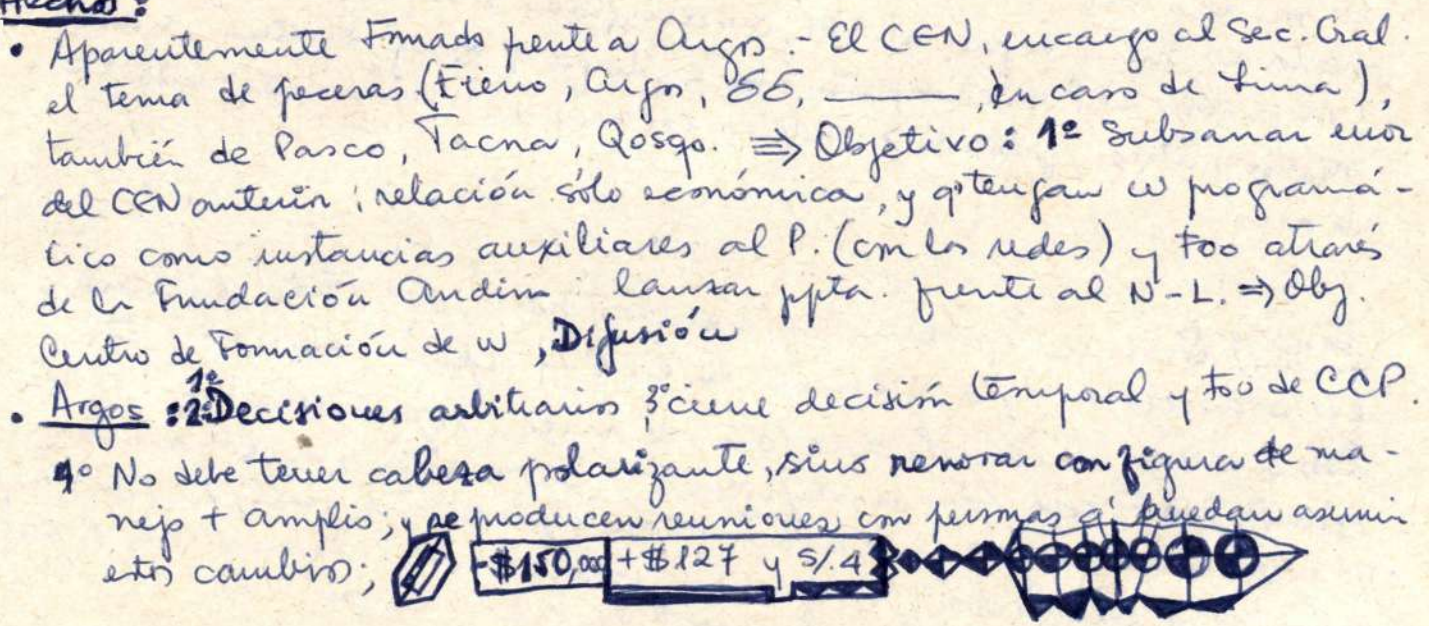 Hechos:
• Aparentemente Fmado frente a Argos.- El CEN, encargo al Sec. Gral.
el tema de peceras (Freno, Argos, , ______, en caso de Lima),
también de Pasco, Tacna, Qosqo. ⇒ Objetivo: 1º Subsanar error
del CEN anterior; relación sólo económica, y q' tengan w programá-
tico como instancias auxiliares al P. (con las redes) y Foo através
de la Fundación Andina: lanzar ppta. frente al N-L. ⇒ Obj.
Centro de Formación de w, Difusión
• Argos: 1º 2º Decisiones arbitrarias 3º cierre decisión temporal y Foo de CCP.
4º No debe tener cabeza polarizante, sino renovar con figura de ma-
nejo + amplio; y se producen reuniones con personas q' puedan asumir
estos cambios; -$150,000 +$127 y S/.4